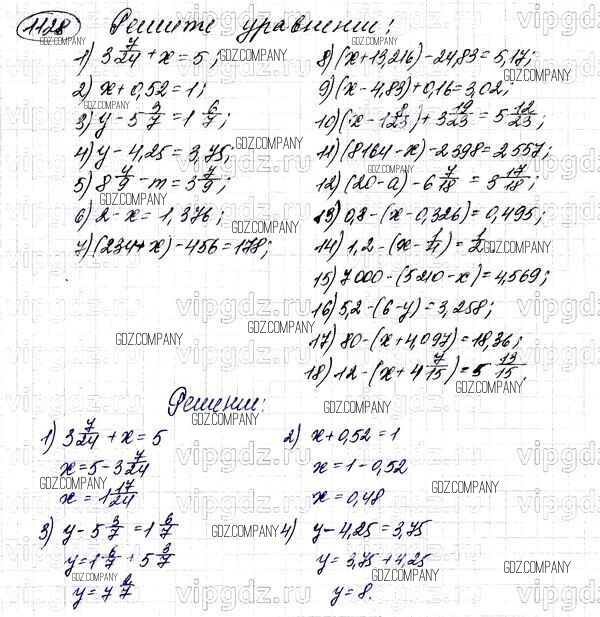 1128 Решите уравнения:
1) 3 7/24 + x = 5;
2) x + 0,52 = 1;
3) y - 5 3/7 = 1 6/7;
4) y - 4,25 = 3,75;
5) 8 4/9 - m = 3 7/9;
6) 2 - x = 1,376;
7) (234 + x) - 456 = 178;
8) (x + 13,216) - 24,83 = 5,17;
9) (x - 4,83) + 0,16 = 3,02;
10) (x - 1 8/23) + 3 19/23 = 5 12/23;
11) (8164 - x) - 2398 = 2557;
12) (20 - a) - 6 7/18 = 3 17/18;
13) 0,8 - (x - 0,326) = 0,495;
14) 1,2 - (x - 1/4) = 1/2
15) 7000 - (5210 - x) = 4,569;
16) 5,2 - (6 - y) = 3,258;
17) 80 - (x + 4,097) = 18,36;
18) 12 - (x + 4 7/15) = 5 13/15.
Решение:
1) 3 7/24 + x = 5
x = 5 - 3 7/24
x = 1 17/24
2) x + 0,52 = 1
x = 1 - 0,52
x = 0,48
3) y - 5 3/7 = 1 6/7
y = 1 6/7 + 5 3/7
y = 7 2/7
4) y - 4,25 = 3,75
y = 3,75 + 4,25
y = 8.
GDZ.COMPANY
vipgdz.ru